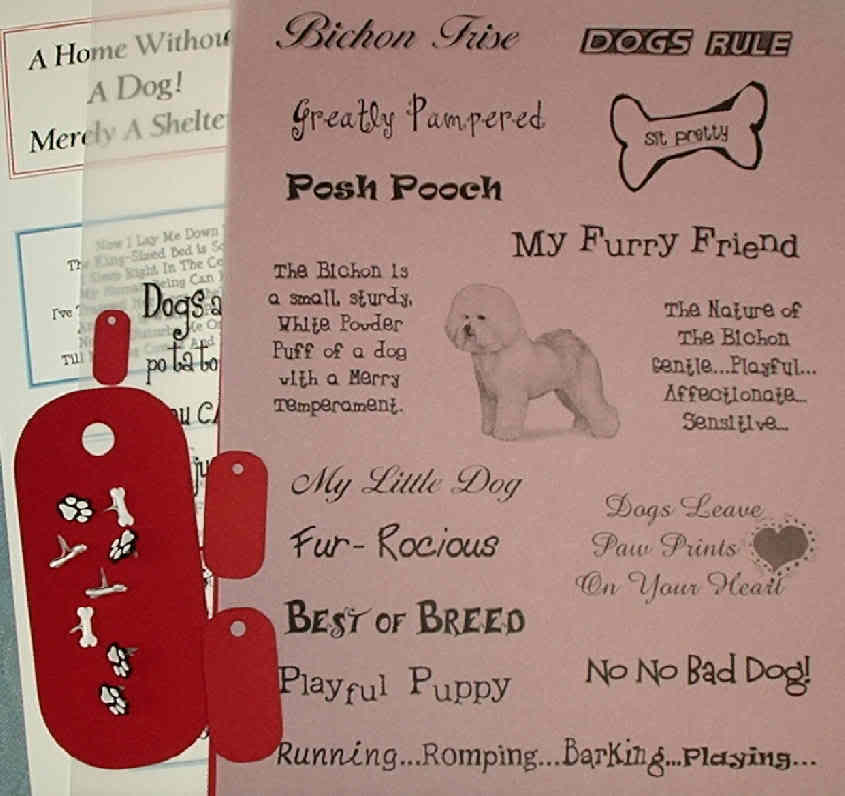 A Home Without
A Dog!
Merely A Shelter
Now I Lay Me Down
King-Sized Bed is
I've
Till
Dogs a
potato
ou CA
ju
Bichon Frise
DOGS RULE
Greatly Pampered
sit pretty
Posh Pooch
My Furry Friend
The Bichon is
a small, sturdy,
White Powder
Puff of a dog
with a Merry
Temperament.
The Nature of
The Bichon
Gentle...Playful...
Affectionate...
Sensitive...
My Little Dog
Fur-Rocious
Dogs Leave
Paw Prints
On Your Heart
Best of Breed
Playful Puppy
No No Bad Dog!
Running...Romping...Barking...Playing...